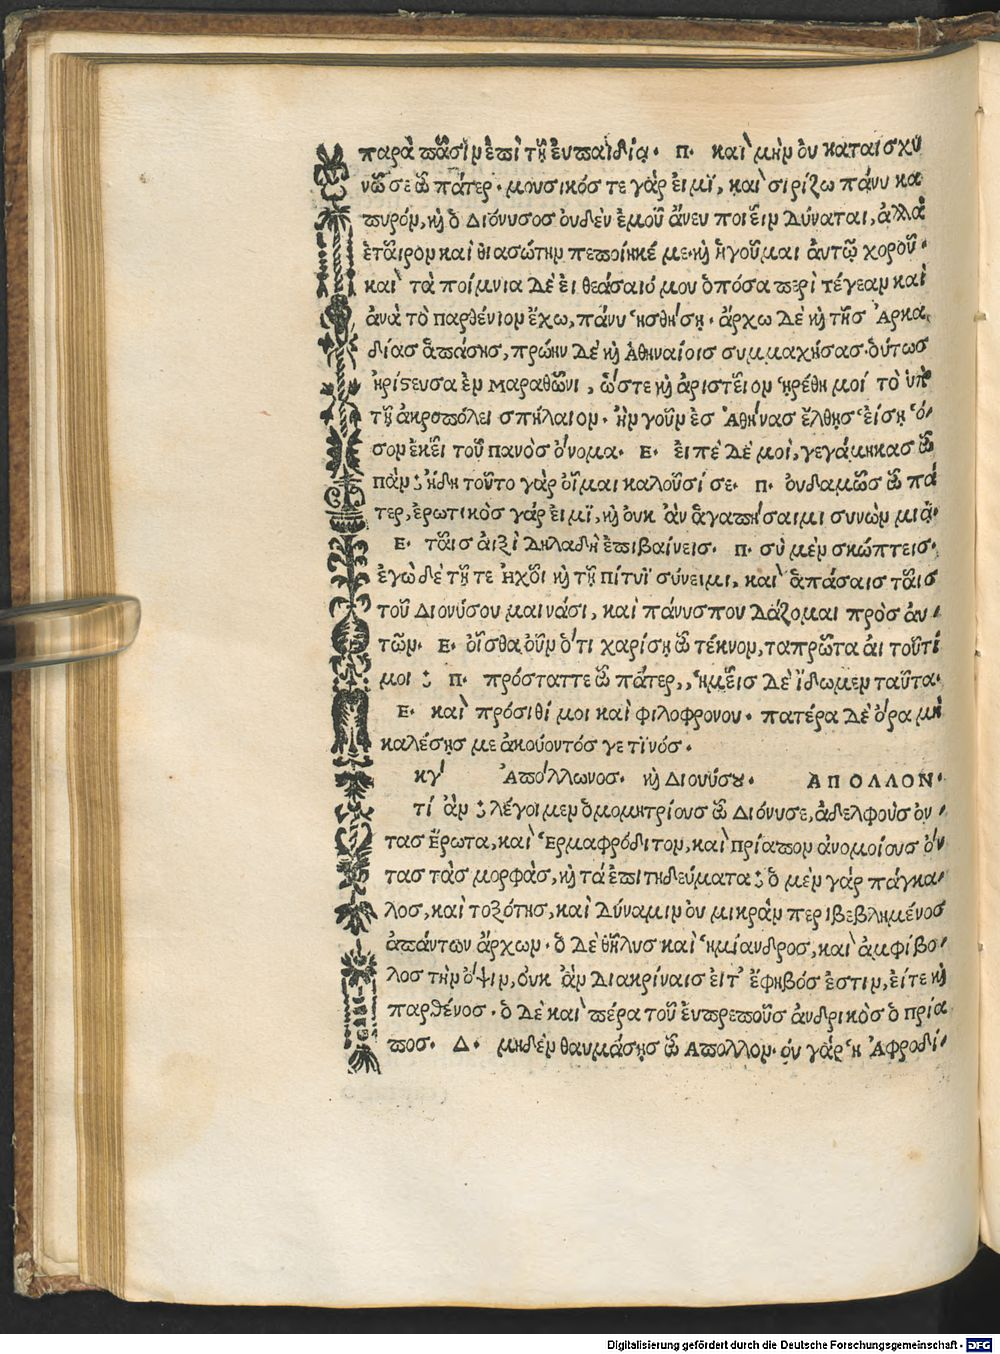 παρὰ πᾶσιν ἐπὶ τῇ εὐπαιδίᾳ. Π. καὶ μὴν ὀυ καταισχυ
νῶ σε ὦ πάτερ. μουσικός τε γὰρ ἐιμὶ, καὶ συρίζω πάνυ κα
πυρόν, καὶ ὁ Διόνυσος ὀυδὲν ἐμοῦ ἄνευ ποιεῖν δύναται, ἀλλὰ
ἑταῖρον καὶ θιασώτην πεποίηκέ με. καὶ ἡγοῦμαι ἀυτῷ χοροῦ.
καὶ τὰ ποίμνια δὲ ἐι θεάσαιό μου ὁπόσα περὶ τέγεαν καὶ
ἀνὰ τὸ παρθένιον ἔχω, πάνυ ἡσθήσῃ. ἄρχω δὲ καὶ τῆς Ἀρκα
δίας ἁπάσης, πρώην δὲ καὶ Ἀθηναίοις συμμαχήσας. ὅυτως
ἠρίστευσα ἐν Μαραθῶνι, ὥστε καὶ ἀριστεῖον ἡρέθη μοι τὸ ὑπὸ
τῇ ἀκροπόλει σπήλαιον. ἢν γοῦν ἐς Ἀθήνας ἔλθῃς ἔισῃ ὅ-
σον ἐκεῖ τοῦ Πανὸς ὄνομα. Ε. ἐιπὲ δέ μοι, γεγάμηκας ὦ
πὰν; ἤδη τοῦτο γὰρ οἶμαι καλοῦσί σε. Π. ὀυδαμῶς ὦ πά
τερ, ἐρωτικὸς γάρ ἐιμι, καὶ ὀυκ ἂν ἀγαπήσαιμι συνὼν μιᾷ.
Ε. ταῖς ἀιξὶ δηλαδὴ ἐπιβαίνεις. Π. σὺ μὲν σκώπτεις.
ἐγὼ δὲ τῇ τε Ἠχοῖ καὶ τῇ πίτυϊ σύνειμι, καὶ ἁπάσαις ταῖς
τοῦ Διονύσου μαινάσι, καὶ πάνυ σπουδάζομαι πρὸς ἀυ-
τῶν. Ε. οἶσθα ὀῦν ὅτι χαρίσῃ ὦ τέκνον, ταπρῶτα ἀι τοῦντί
μοι; Π. πρόσταττε ὦ πάτερ,, ἡμεῖς δὲ ἴδωμεν ταῦτα.
Ε. καὶ πρόσιθί μοι καὶ φιλοφρονου. πατέρα δὲ ὅρα μὴ
καλέσῃς με ἀκούοντός γε τινός.
κγ' Ἀπόλλωνος. καὶ Διονύσου. ΑΠΟΛΛΟΝ.
τί ἂν; λέγοιμεν ὁμομητρίους ὦ Διόνυσε, ἀδελφοὺς ὄν-
τας Ἔρωτα, καὶ Ἑρμαφρόδιτον, καὶ Πρίαπον ἀνομοίους ὄν
τας τὰς μορφὰς, καὶ τά ἐπιτηδεύματα; ὁ μὲν γὰρ πάγκα-
λος, καὶ τοξότης, καὶ δύναμιν ὀυ μικρὰν περιβεβλημένος
ἁπάντων ἄρχων. ὁ δὲ θῆλυς καὶ ἡμίανδρος, καὶ ἀμφίβο-
λος τὴν ὄψιν, ὀυκ ἂν διακρίναις ἔιτ' ἔφηβός ἐστιν, ἔιτε καὶ
παρθένος. ὁ δὲ καὶ πέρα τοῦ ἐυπρεποῦς ἀνδρικὸς ὁ πρία
πος. Δ. μηδὲν θαυμάσῃς ὦ Ἄπολλον. ὀυ γὰρ ἡ Ἀφροδί-
Digitalisierung gefördert durch die Deutsche Forschungsgemeinschaft - DFG